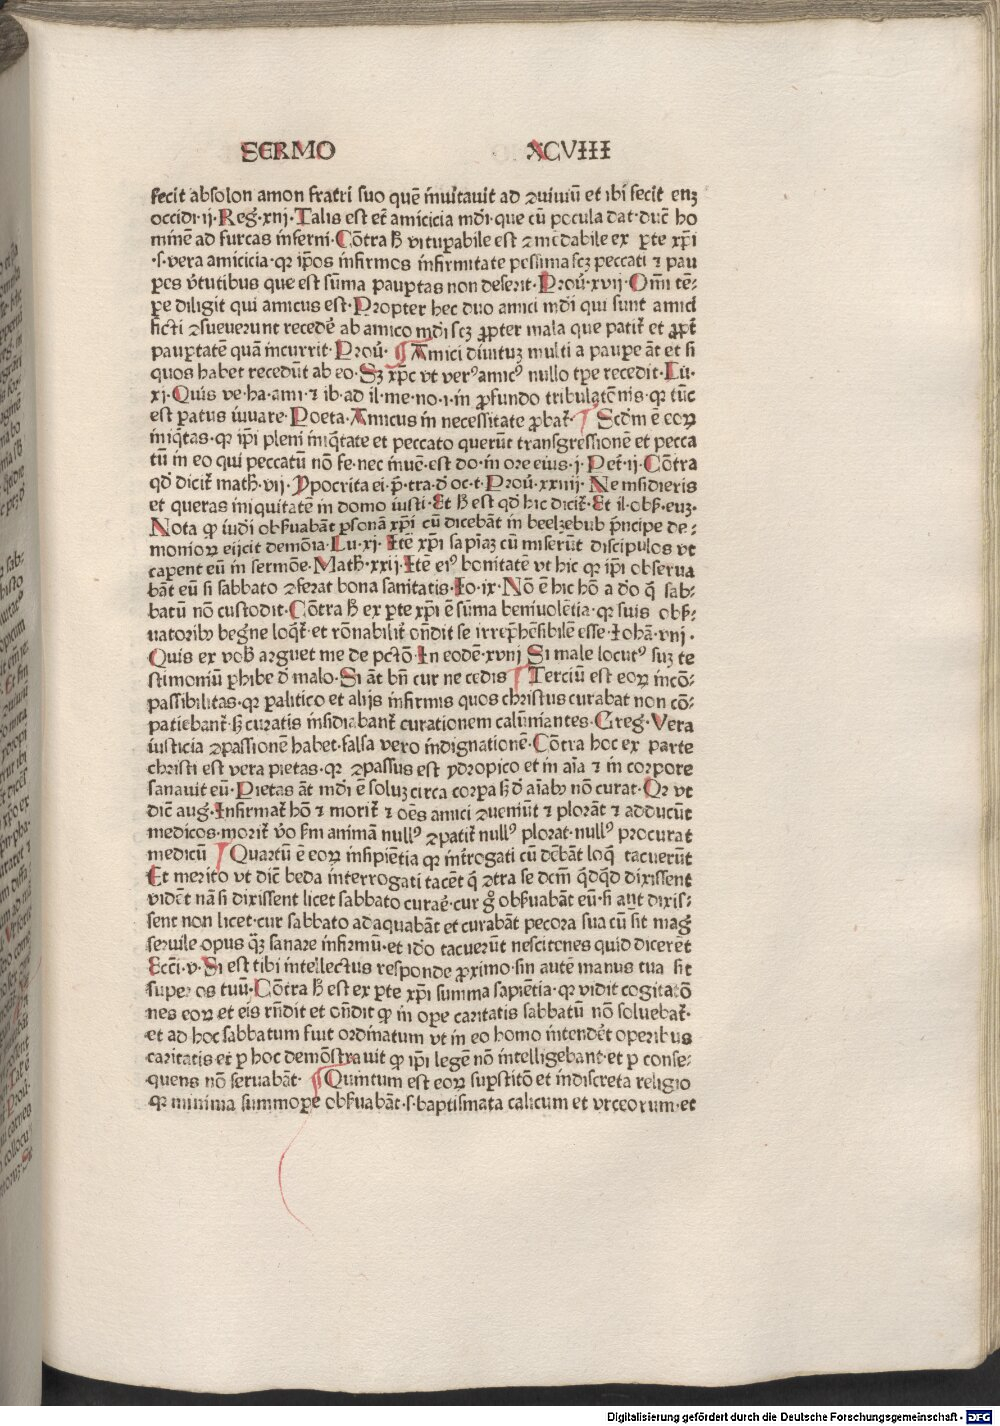 SERMO XCVIII
fecit absolon amon fratri suo quē inuitauit ad ꝯuiuiū et ibi fecit enꝫ
occidi·ij·Reg̃·xiij·Talis est et̄ amicicia mūdi·que cū pocula dat·ducit ho
minē ad furcas inferni·Cōtra h̄ vituꝑabile est ꝯmēdabile ex ꝑte xp̄i
·s·vera amicicia·qꝛ ip̄os infirmos infirmitate pessima scꝫ peccati ⁊ pau
ꝑes v̄tutibus que est sūma pauꝑtas non deserit·Prou̾·xvij·Om̄i tē⸗
ꝑe diligit qui amicus est·Propter hec duo amici mūdi qui sunt amici
ficti ꝯsueuerunt recede̾ ab amico mūdi scꝫ ꝓpter mala que patit̃ et ꝓpt̃
pauꝑtatē quā incurrit·Prou̾·¶Amici diuitum multi a pauꝑe āt et si
quos habet recedūt ab eo·Sꝫ xp̄c vt verꝰ amicꝰ nullo tꝑe recedit·Lu·
xj·Quis ve·ha·ami·⁊ ib·ad il·me·no·i·in ꝓfundo tribulatōnis·qꝛ tūc
est paratus iuuare·Poeta·Amicus in necessitate ꝓbat̃·¶Scd̄m ē eoꝝ
iniq̃tas·qꝛ ip̄i pleni iniq̃tate et peccato querūt transgressionē et pecca
tū in eo qui peccatū nō fe·nec inuē·est do·in ore eius·j·Pet̃·ij·Cōtra
qd̄ dicit̃ math̾·vij·Ypocrita ei·p̄·tra·d̄ oc·t·Prou̾·xxiiij·Ne insidieris
et queras iniquitatē in domo iusti·Et h̄ est qd̄ hic dicit̃·Et il·obẜ·euꝫ·
Nota ꝙ iudi̾ obẜuabāt ꝑsonā xp̄i cū dicebāt in beelzebub p̄ncipe de⸗
monioꝝ eijcit demōia·Lu·xj·Itē xp̄i sapiaꝫ cū miserūt discipulos vt
caꝑent eū in sermōe·Math̾·xxij·Itē eiꝰ bonitatē vt hic qꝛ ip̄i obserua
bāt eū si sabbato ꝯferat bona sanitatis·Io·ix·Nō ē hic hō a do q̄ sab⸗
batū nō custodit·Cōtra h̄ ex ꝑte xp̄i ē sūma beniuolētia·qꝛ suis obẜ⸗
uatoribꝰ begne loq̃t̃·et rōnabilit̃ on̄dit se irrep̄hēsibilē esse·Iohā·viij·
Quis ex vob̄ arguet me de pctō·In eodē·xviij Si male locutꝰ suꝫ te
stimoniū ꝑhibe d̄ malo·Si āt bn̄ cur ne cedis ¶Terciū est eoꝝ incō⸗
passibilitas·qꝛ palitico et alijs infirmis quos christus curabat non cō⸗
patiebant̃·ẜ curatis insidiabant̃ curationem calūniantes·Greg·Vera
iusticia ꝯpassionē habet·falsa vero indignationē·Cōtra hoc ex parte
christi est vera pietas·qꝛ ꝯpassus est ydropico et in aīa ⁊ in corpore
sanauit eū·Pietas āt mūdi ē soluꝫ circa corpa ẜ d̄ aīabꝰ nō curat·Qꝛ vt
dic̄ aug̃·Infirmat̃ hō ⁊ morit̃ ⁊ oēs amici ꝯueniūt ⁊ plorāt ⁊ adducūt
medicos·morit̃ v̾o ẜm animā nullꝰ ꝯpatit̃ nullꝰ plorat·nullꝰ procurat
medicū ¶Quartū ē eoꝝ insipiētia qꝛ int̾rogati cū dēbāt loq̃ tacuerūt
Et merito vt dic̄ beda interrogati tacēt q̄ ꝯtra se dc̄m q̃dq̃d dixissent
vidēt nā si dixissent licet sabbato curare̾·cur g̊ obẜuabāt eū·si aūt dixis⸗
sent non licet·cur sabbato adaquabāt et curabāt pecora sua cū sit mag̃
seruile opus q̃ꝫ sanare infirmū·et id̾o tacuerūt nescitenes quid dicerēt
Ecc̄i·v·Si est tibi intellectus responde ꝓximo·sin autē manus tua sit
super os tuū·Cōtra h̄ est ex ꝑte xp̄i summa sapiētia·qꝛ vidit cogitatō
nes eoꝝ et eis rn̄dit et on̄dit ꝙ in ope caritatis sabbatū nō soluebat̃·
et ad hoc sabbatum fuit ordinatum vt in eo homo intendēt operibus
caritatis et ꝑ hoc demōstrauit ꝙ ip̄i legē nō intelligebant·et ꝑ conse⸗
quens nō seruabāt·¶Quintum est eoꝝ suꝑstitō et indiscreta religio
qꝛ minima summoꝑe obẜuabāt·s·baptismata calicum et vrceorum·et
Digitalisierung gefördert durch die Deutsche Forschungsgemeinschaft - DFG